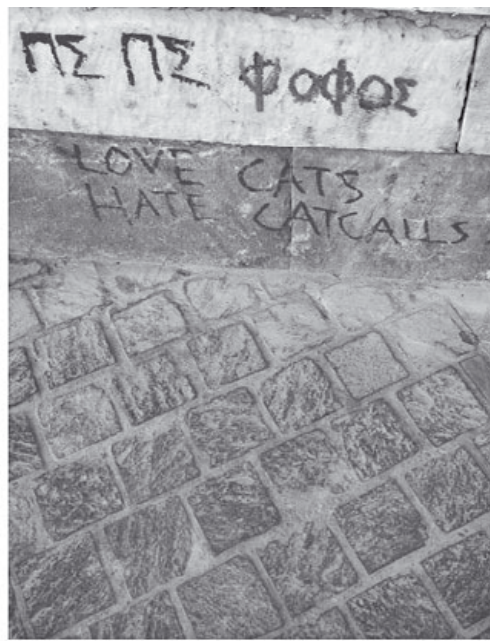 ΠΣ ΠΣ ΨΟΦΟΣ
LOVE CATS
HATE CATCALLS